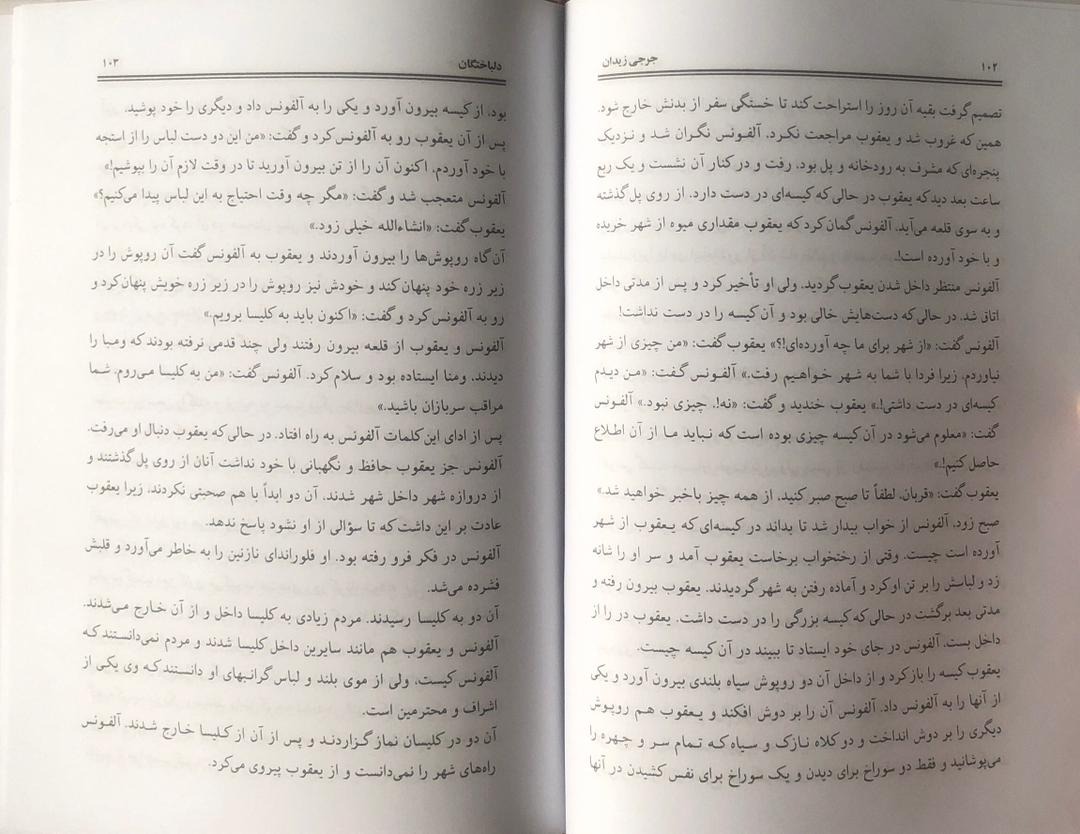 ۱۰۲
جرجی زیدان
تصمیم گرفت بقیه آن روز را استراحت کند تا خستگی سفر از بدنش خارج شود.
همین که غروب شد و یعقوب مراجعت نکرد. آلفونس نگران شد و نزدیک
پنجره‌ای که مشرف به رودخانه و پل بود، رفت و در کنار آن نشست و یک ربع
ساعت بعد دید که یعقوب در حالی که کیسه‌ای در دست دارد. از روی پل گذشته
و به سوی قلعه می‌آید. آلفونس گمان کرد که یعقوب مقداری میوه از شهر خریده
و با خود آورده است!.
آلفونس منتظر داخل شدن یعقوب گردید. ولی او تأخیر کرد و پس از مدتی داخل
اتاق شد. در حالی که دست‌هایش خالی بود و آن کیسه را در دست نداشت!
آلفونس گفت: «از شهر برای ما چه آورده‌ای!؟» یعقوب گفت: «من چیزی از شهر
نیاوردم، زیرا فردا با شما به شهر خواهیم رفت.» آلفونس گفت: «من دیدم
کیسه‌ای در دست داشتی!.» یعقوب خندید و گفت: «نه!. چیزی نبود.» آلفونس
گفت: «معلوم می‌شود در آن کیسه چیزی بوده است که نباید ما از آن اطلاع
حاصل کنیم!.»
یعقوب گفت: «قربان، لطفاً تا صبح صبر کنید، از همه چیز باخبر خواهید شد.»
صبح زود، آلفونس از خواب بیدار شد تا بداند در کیسه‌ای که یعقوب از شهر
آورده است چیست. وقتی از رختخواب برخاست یعقوب آمد و سر او را شانه
زد و لباسش را بر تن او کرد و آماده رفتن به شهر گردیدند. یعقوب بیرون رفته و
مدتی بعد برگشت در حالی که کیسه بزرگی را در دست داشت. یعقوب در را از
داخل بست. آلفونس در جای خود ایستاد تا ببیند در آن کیسه چیست.
یعقوب کیسه را باز کرد و از داخل آن دو روپوش سیاه بلندی بیرون آورد و یکی
از آنها را به آلفونس داد. آلفونس آن را بر دوش افکند و یعقوب هم روپوش
دیگری را بر دوش انداخت و دو کلاه نازک و سیاه که تمام سر و چهره را
می‌پوشانید و فقط دو سوراخ برای دیدن و یک سوراخ برای نفس کشیدن در آنها
دلباختگان
۱۰۳
بود، از کیسه بیرون آورد و یکی را به آلفونس داد و دیگری را خود پوشید.
پس از آن یعقوب رو به آلفونس کرد و گفت: «من این دو دست لباس را از استجه
با خود آوردم. اکنون آن را از تن بیرون آورید تا در وقت لازم آن را بپوشیم!»
آلفونس متعجب شد و گفت: «مگر چه وقت احتیاج به این لباس پیدا می‌کنیم؟»
یعقوب گفت: «انشاءالله خیلی زود.»
آن گاه روپوش‌ها را بیرون آوردند و یعقوب به آلفونس گفت آن روپوش را در
زیر زره خود پنهان کند و خودش نیز روپوش را در زیر زره خویش پنهان کرد و
رو به آلفونس کرد و گفت: «اکنون باید به کلیسا برویم.»
آلفونس و یعقوب از قلعه بیرون رفتند ولی چند قدمی نرفته بودند که ومبا را
دیدند، ومنا ایستاده بود و سلام کرد. آلفونس گفت: «من به کلیسا می‌روم، شما
مراقب سربازان باشید.»
پس از ادای این کلمات آلفونس به راه افتاد. در حالی که یعقوب دنبال او می‌رفت.
آلفونس جز یعقوب حافظ و نگهبانی با خود نداشت آنان از روی پل گذشتند و
از دروازه شهر داخل شهر شدند. آن دو ابداً با هم صحبتی نکردند، زیرا یعقوب
عادت بر این داشت که تا سؤالی از او نشود پاسخ ندهد.
آلفونس در فکر فرو رفته بود. او فلوراندای نازنین را به خاطر می‌آورد و قلبش
فشرده می‌شد.
آن دو به کلیسا رسیدند. مردم زیادی به کلیسا داخل و از آن خارج می‌شدند.
آلفونس و یعقوب هم مانند سایرین داخل کلیسا شدند و مردم نمی‌دانستند که
آلفونس کیست، ولی از موی بلند و لباس گرانبهای او دانستند که وی یکی از
اشراف و محترمین است.
آن دو در کلیسان نماز گزاردند و پس از آن از کلیسا خارج شدند. آلفونس
راه‌های شهر را نمی‌دانست و از یعقوب پیروی می‌کرد.